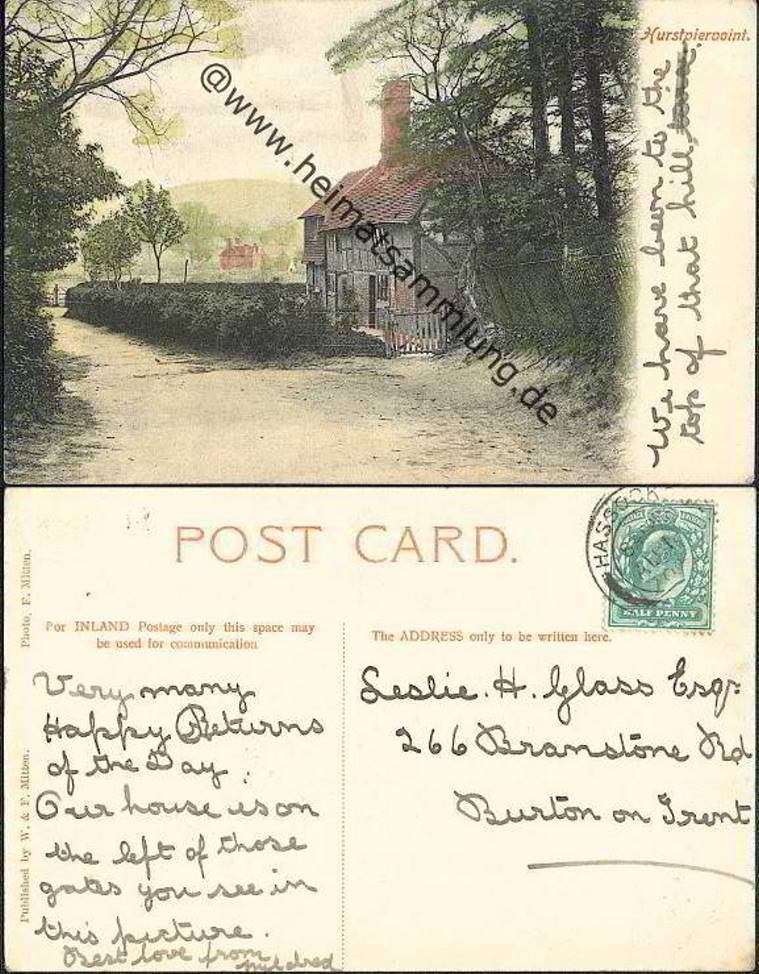 Hurstpierpoint.
We have been to the
top of that hill,
@www.heimatsammlung.de
POST CARD.
Photo, F. Mitten.
Published by W. & F. Mitten.
For INLAND Postage only this space may
be used for communication
The ADDRESS only to be written here.
HASSOCKS
HALF PENNY
Very many
Happy Returns
of the Day.
Our house is on
the left of those
gates you see in
this picture.
Best love from
Mildred
Leslie. H. Glass Esqr:
266 Branstone Rd
Burton on Trent